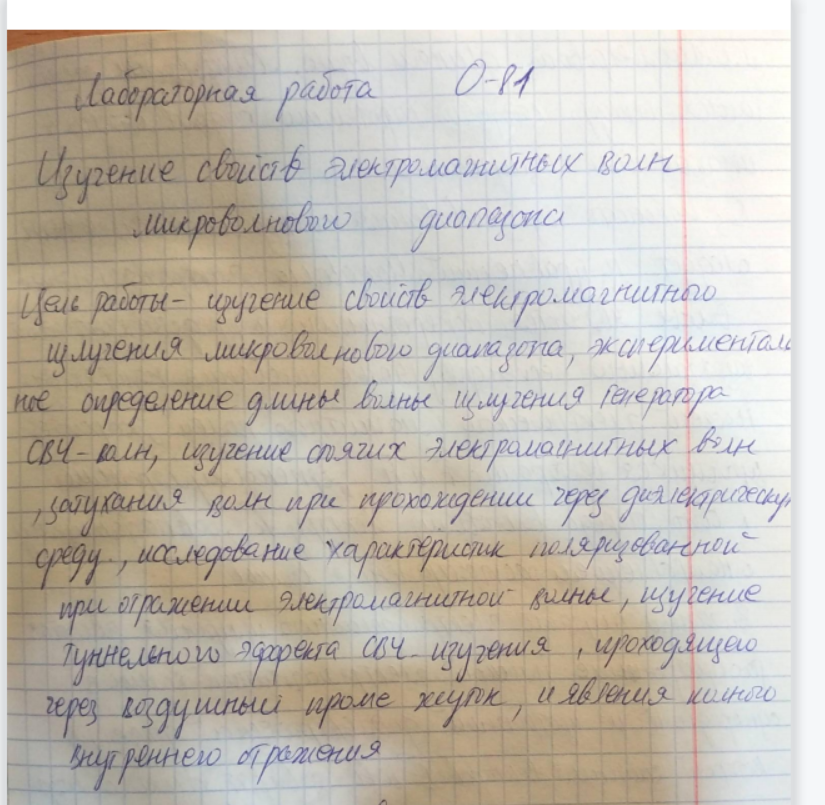 Лабораторная работа О-81
Изучение свойств электромагнитных волн
микроволнового диапазона
Цель работы- изучение свойств электромагнитного
излучения микроволнового диапазона, эксперименталь
ное определение длины волны излучения генератора
СВЧ-волн, изучение стоячих электромагнитных волн
, затухания волн при прохождении через диэлектрическую
среду, исследование характеристик поляризованной
при отражении электромагнитной волны, изучение
туннельного эффекта СВЧ-изучения, проходящего
через воздушный промежуток, и явления полного
внутреннего отражения